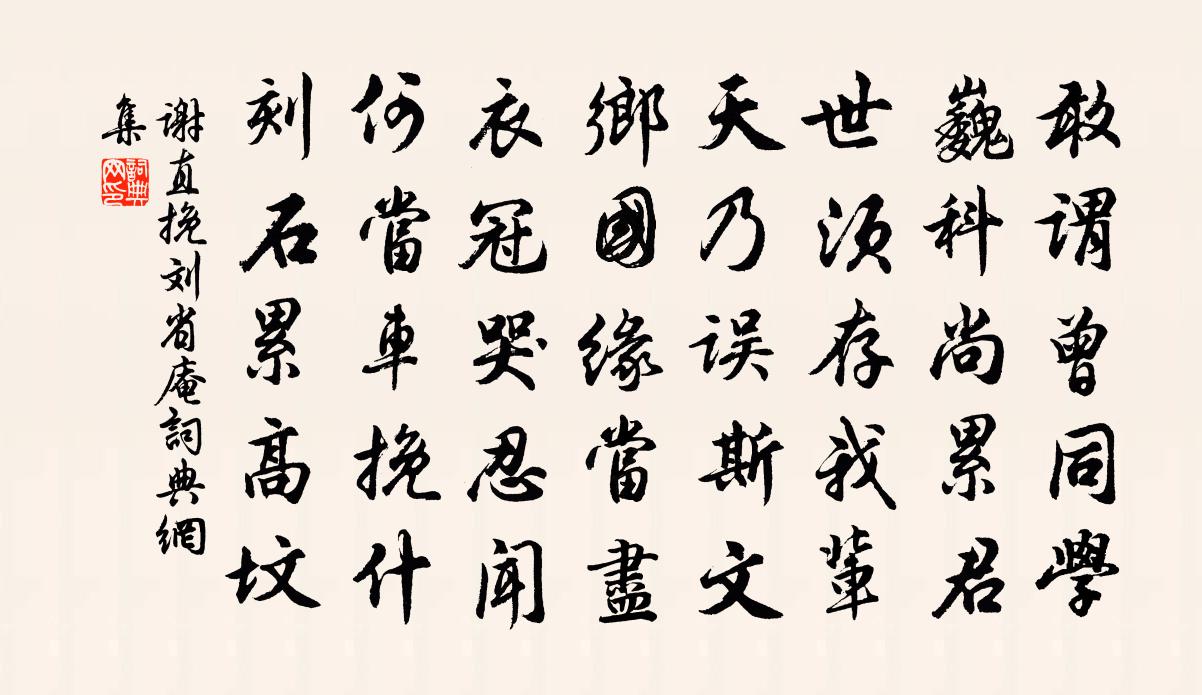 敢謂曾同學
巍科尚累君
世須存我輩
天乃误斯文
鄉國緣當盡
衣冠哭忍聞
何當車挽什
刻石累高坟
谢直挽刘省庵詞典網
集
詞典
网印